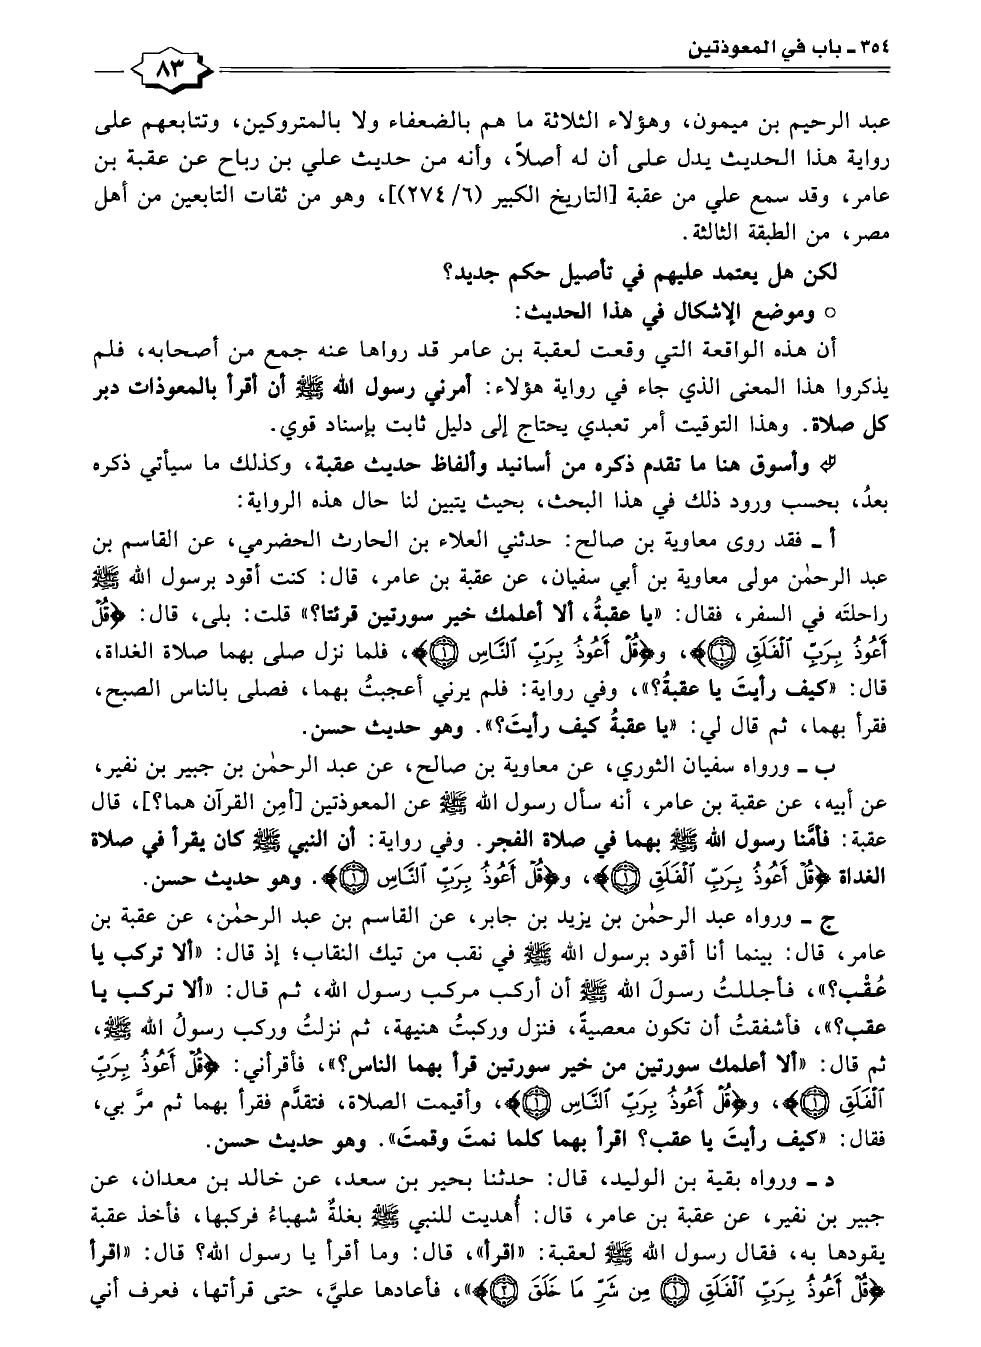 ٣٥٤ ـ باب في المعوذتين
٨٣
عبد الرحيم بن ميمون، وهؤلاء الثلاثة ما هم بالضعفاء ولا بالمتروكين، وتتابعهم على
رواية هذا الحديث يدل على أن له أصلاً، وأنه من حديث علي بن رباح عن عقبة بن
عامر، وقد سمع علي من عقبة [التاريخ الكبير (٦/ ٢٧٤)]، وهو من ثقات التابعين من أهل
مصر، من الطبقة الثالثة.
لكن هل يعتمد عليهم في تأصيل حكم جديد؟
○ وموضع الإشكال في هذا الحديث:
أن هذه الواقعة التي وقعت لعقبة بن عامر قد رواها عنه جمع من أصحابه، فلم
يذكروا هذا المعنى الذي جاء في رواية هؤلاء: أمرني رسول الله ﷺ أن أقرأ بالمعوذات دبر
كل صلاة. وهذا التوقيت أمر تعبدي يحتاج إلى دليل ثابت بإسناد قوي.
وأسوق هنا ما تقدم ذكره من أسانيد وألفاظ حديث عقبة، وكذلك ما سيأتي ذكره
بعدُ، بحسب ورود ذلك في هذا البحث، بحيث يتبين لنا حال هذه الرواية:
أ ـ فقد روى معاوية بن صالح: حدثني العلاء بن الحارث الحضرمي، عن القاسم بن
عبد الرحمٰن مولى معاوية بن أبي سفيان، عن عقبة بن عامر، قال: كنت أقود برسول الله ﷺ
راحلتَه في السفر، فقال: «يا عقبةُ، ألا أعلمك خير سورتين قرئتا؟» قلت: بلى، قال: ﴿قُلْ
أَعُوذُ بِرَبِّ ٱلْفَلَقِ ۝١﴾، و﴿قُلْ أَعُوذُ بِرَبِّ ٱلنَّاسِ ۝١﴾، فلما نزل صلى بهما صلاة الغداة،
قال: «كيف رأيتَ يا عقبةُ؟»، وفي رواية: فلم يرني أعجبتُ بهما، فصلى بالناس الصبح،
فقرأ بهما، ثم قال لي: «يا عقبةُ كيف رأيتَ؟». وهو حديث حسن.
ب ـ ورواه سفيان الثوري، عن معاوية بن صالح، عن عبد الرحمٰن بن جبير بن نفير،
عن أبيه، عن عقبة بن عامر، أنه سأل رسول الله ﷺ عن المعوذتين [أمِن القرآن هما؟]، قال
عقبة: فأمَّنا رسول الله ﷺ بهما في صلاة الفجر. وفي رواية: أن النبي ﷺ كان يقرأ في صلاة
الغداة ﴿قُلْ أَعُوذُ بِرَبِّ ٱلْفَلَقِ ۝١﴾، و﴿قُلْ أَعُوذُ بِرَبِّ ٱلنَّاسِ ۝١﴾. وهو حديث حسن.
ج ـ ورواه عبد الرحمٰن بن يزيد بن جابر، عن القاسم بن عبد الرحمٰن، عن عقبة بن
عامر، قال: بينما أنا أقود برسول الله ﷺ في نقب من تيك النقاب؛ إذ قال: «ألا تركب يا
عُقْب؟»، فأجللتُ رسولَ الله ﷺ أن أركب مركب رسول الله، ثم قال: «ألا تركب يا
عقب؟»، فأشفقتُ أن تكون معصيةً، فنزل وركبتُ هنيهة، ثم نزلتُ وركب رسولُ الله ﷺ،
ثم قال: «ألا أعلمك سورتين من خير سورتين قرأ بهما الناس؟»، فأقرأني: ﴿قُلْ أَعُوذُ بِرَبِّ
ٱلْفَلَقِ ۝١﴾، و﴿قُلْ أَعُوذُ بِرَبِّ ٱلنَّاسِ ۝١﴾، وأقيمت الصلاة، فتقدَّم فقرأ بهما ثم مرَّ بي،
فقال: «كيف رأيتَ يا عقب؟ اقرأ بهما كلما نمتَ وقمتَ». وهو حديث حسن.
د ـ ورواه بقية بن الوليد، قال: حدثنا بحير بن سعد، عن خالد بن معدان، عن
جبير بن نفير، عن عقبة بن عامر، قال: أُهديت للنبي ﷺ بغلةٌ شهباءُ فركبها، فأخذ عقبة
يقودها به، فقال رسول الله ﷺ لعقبة: «اقرأ»، قال: وما أقرأ يا رسول الله؟ قال: «اقرأ
﴿قُلْ أَعُوذُ بِرَبِّ ٱلْفَلَقِ ۝١ مِن شَرِّ مَا خَلَقَ ۝٢﴾»، فأعادها عليَّ، حتى قرأتها، فعرف أني